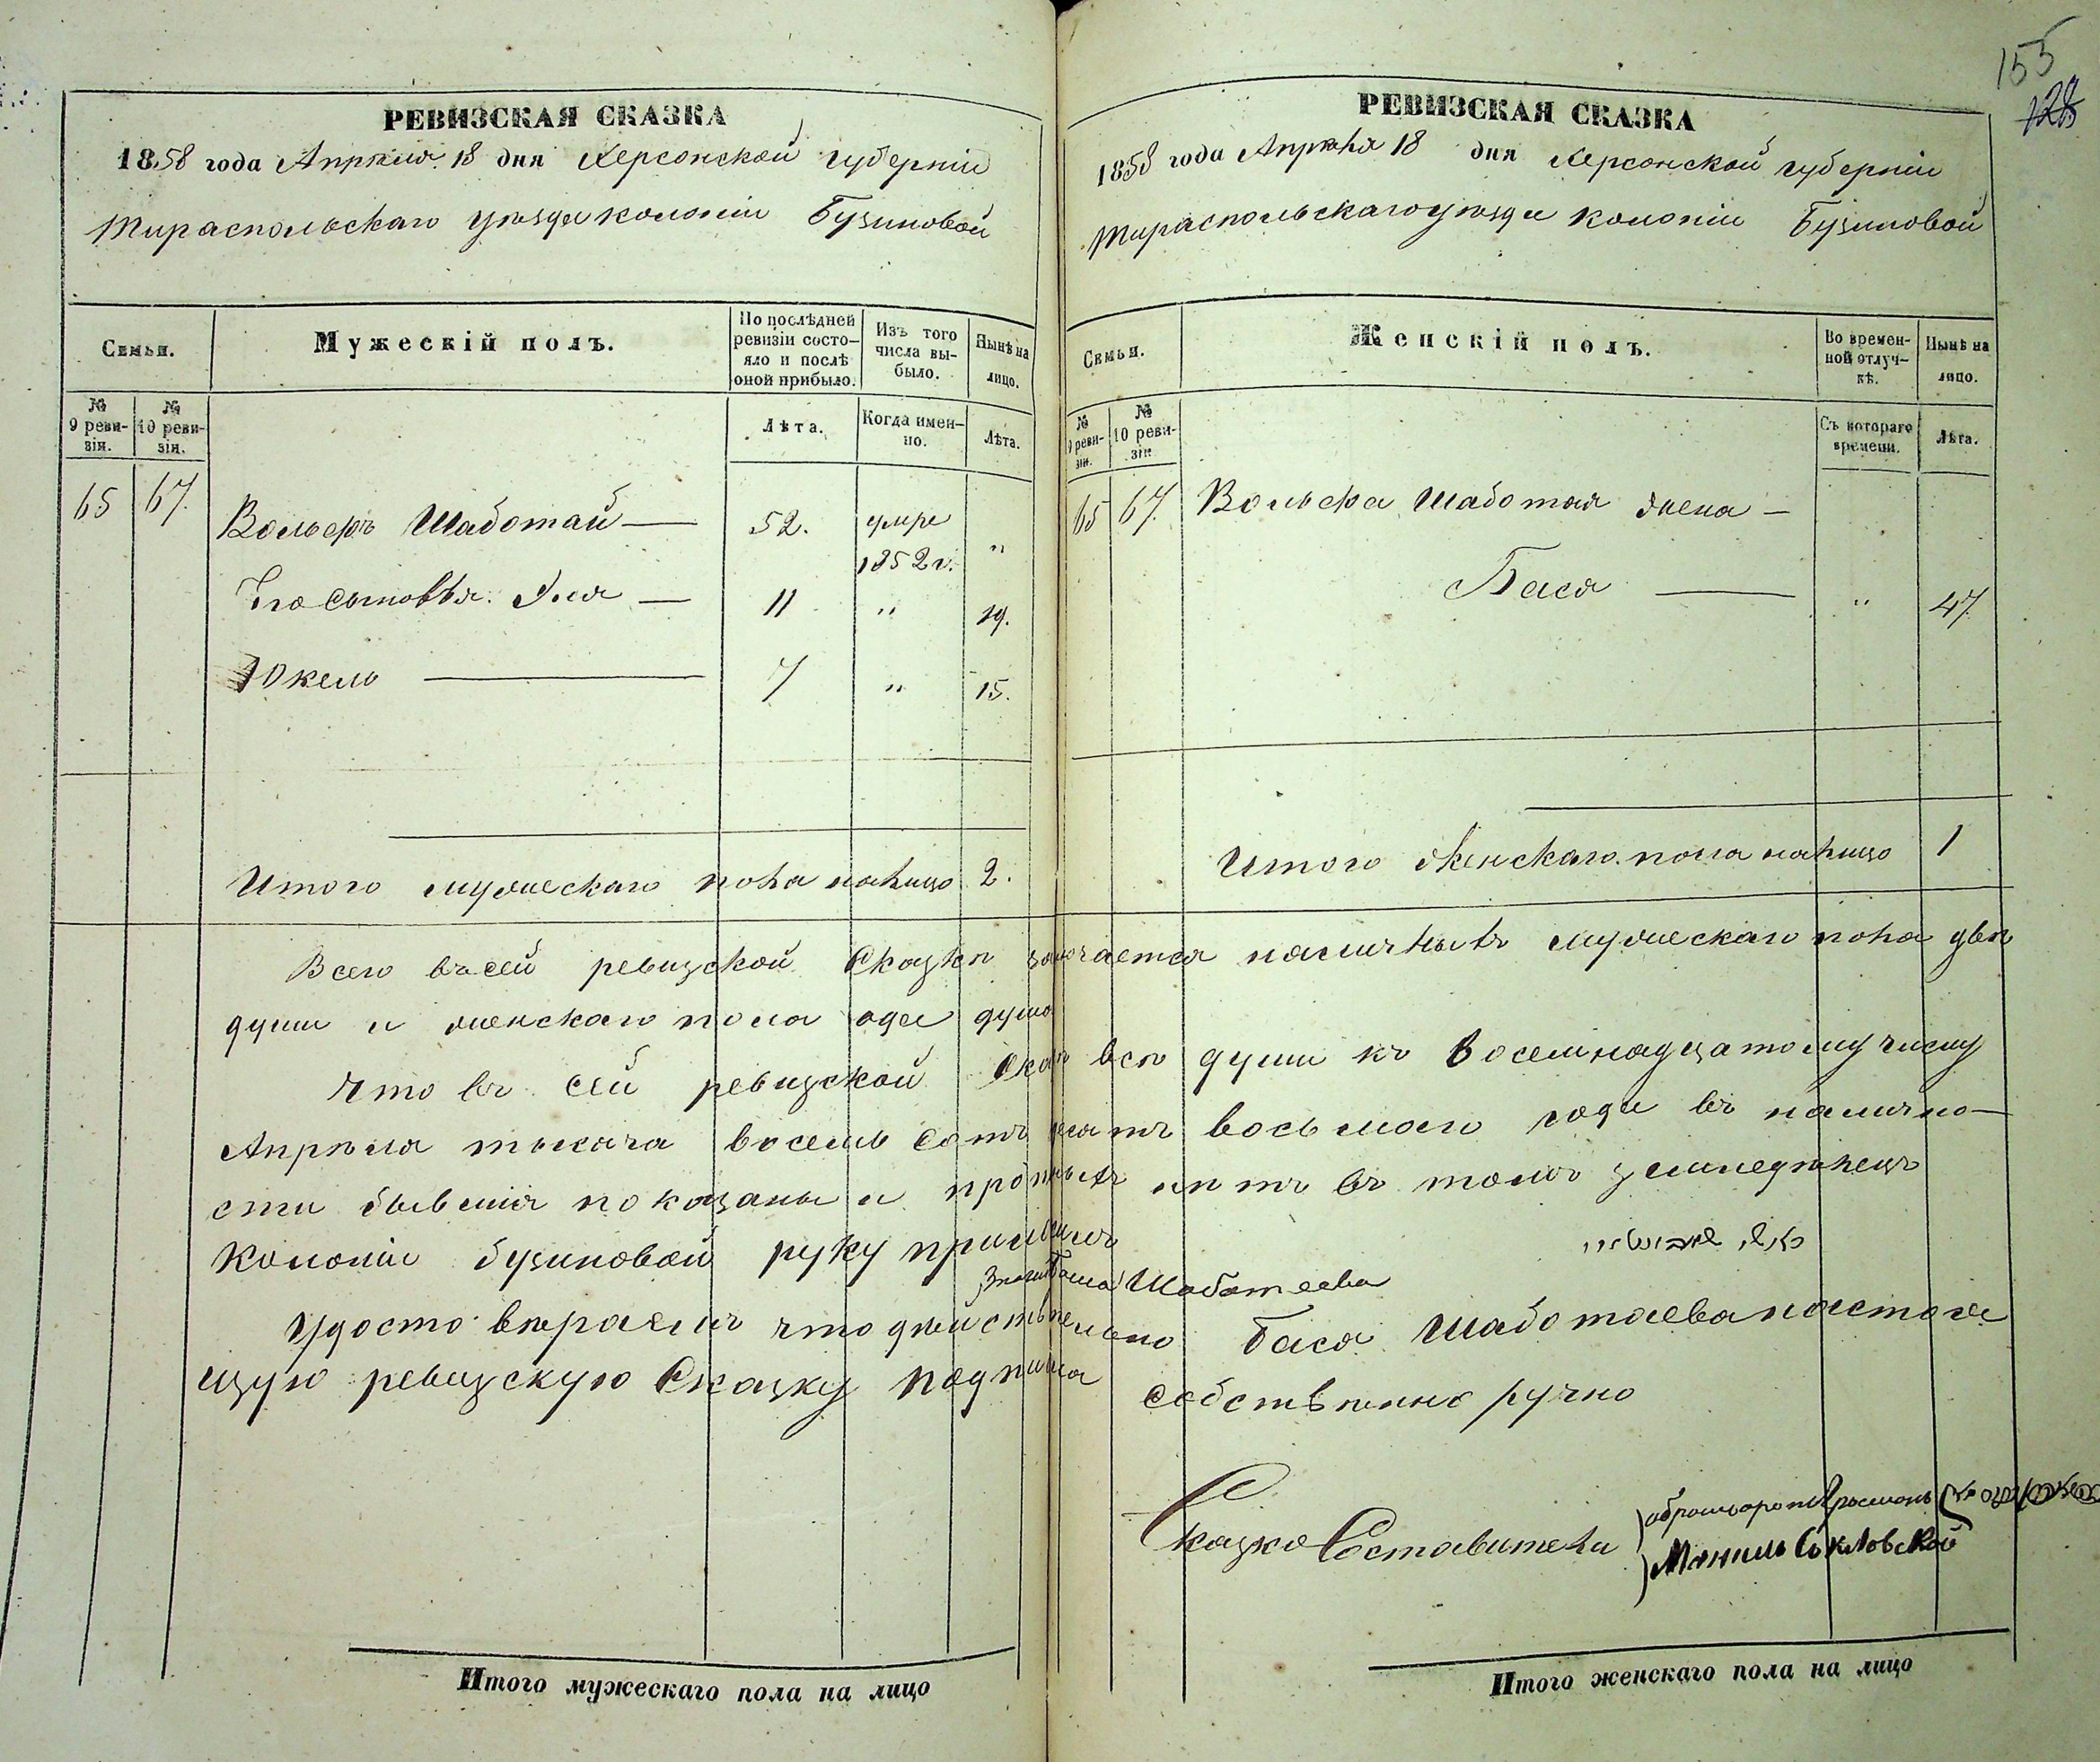 155
128
РЕВИЗСКАЯ СКАЗКА
1858 года Апрѣля 18 дня Херсонской губерніи
Тираспольскаго уѣзда колоніи Бузиновой
Семьи.
Мужескій полъ.
По послѣдней ревизіи состо-
яло и послѣ оной прибыло.
Изъ того числа вы-
было.
Нынѣ на лицо.
№ 9 реви-
зіи.
№ 10 реви-
зіи.
Лѣта.
Когда имен-
но.
Лѣта.
65 67. Вольфъ Шаботай — 52. умре 1852 г. "
Его сыновья. Эля — 11 " 19.
Юкель — 7 " 15.
Итого мужескаго пола налицо 2.
РЕВИЗСКАЯ СКАЗКА
1858 года Апрѣля 18 дня Херсонской губерніи
Тираспольскаго уѣзда колоніи Бузиновой
Семьи.
Женскій полъ.
Во времен-
ной отлуч-
кѣ.
Нынѣ на лицо.
№ 9 реви-
зіи.
№ 10 реви-
зіи
Съ котораго времени.
Лѣта.
65 67. Вольфа Шаботая жена —
Бася — " 47.
Итого женскаго пола налицо 1
Всего в сей ревизской Сказкѣ наличныхъ мужескаго пола двѣ
души и женскаго пола одна душа
Что въ сей ревизской всѣ души къ восемнадцатому числу
Апрѣля тысяча восемь сотъ восьмого года въ налично—
сти бывшія показаны и нѣтъ въ томъ земледѣлецъ
Колоніи бузиновой руку приложилъ
Шаботаева
Удостовѣряемъ что дѣйствительно Бася Шаботаева настоя
щую ревизскую Сказку подписала собственно ручно
Сказко Составители
Итого мужескаго пола на лицо
Итого женскаго пола на лицо